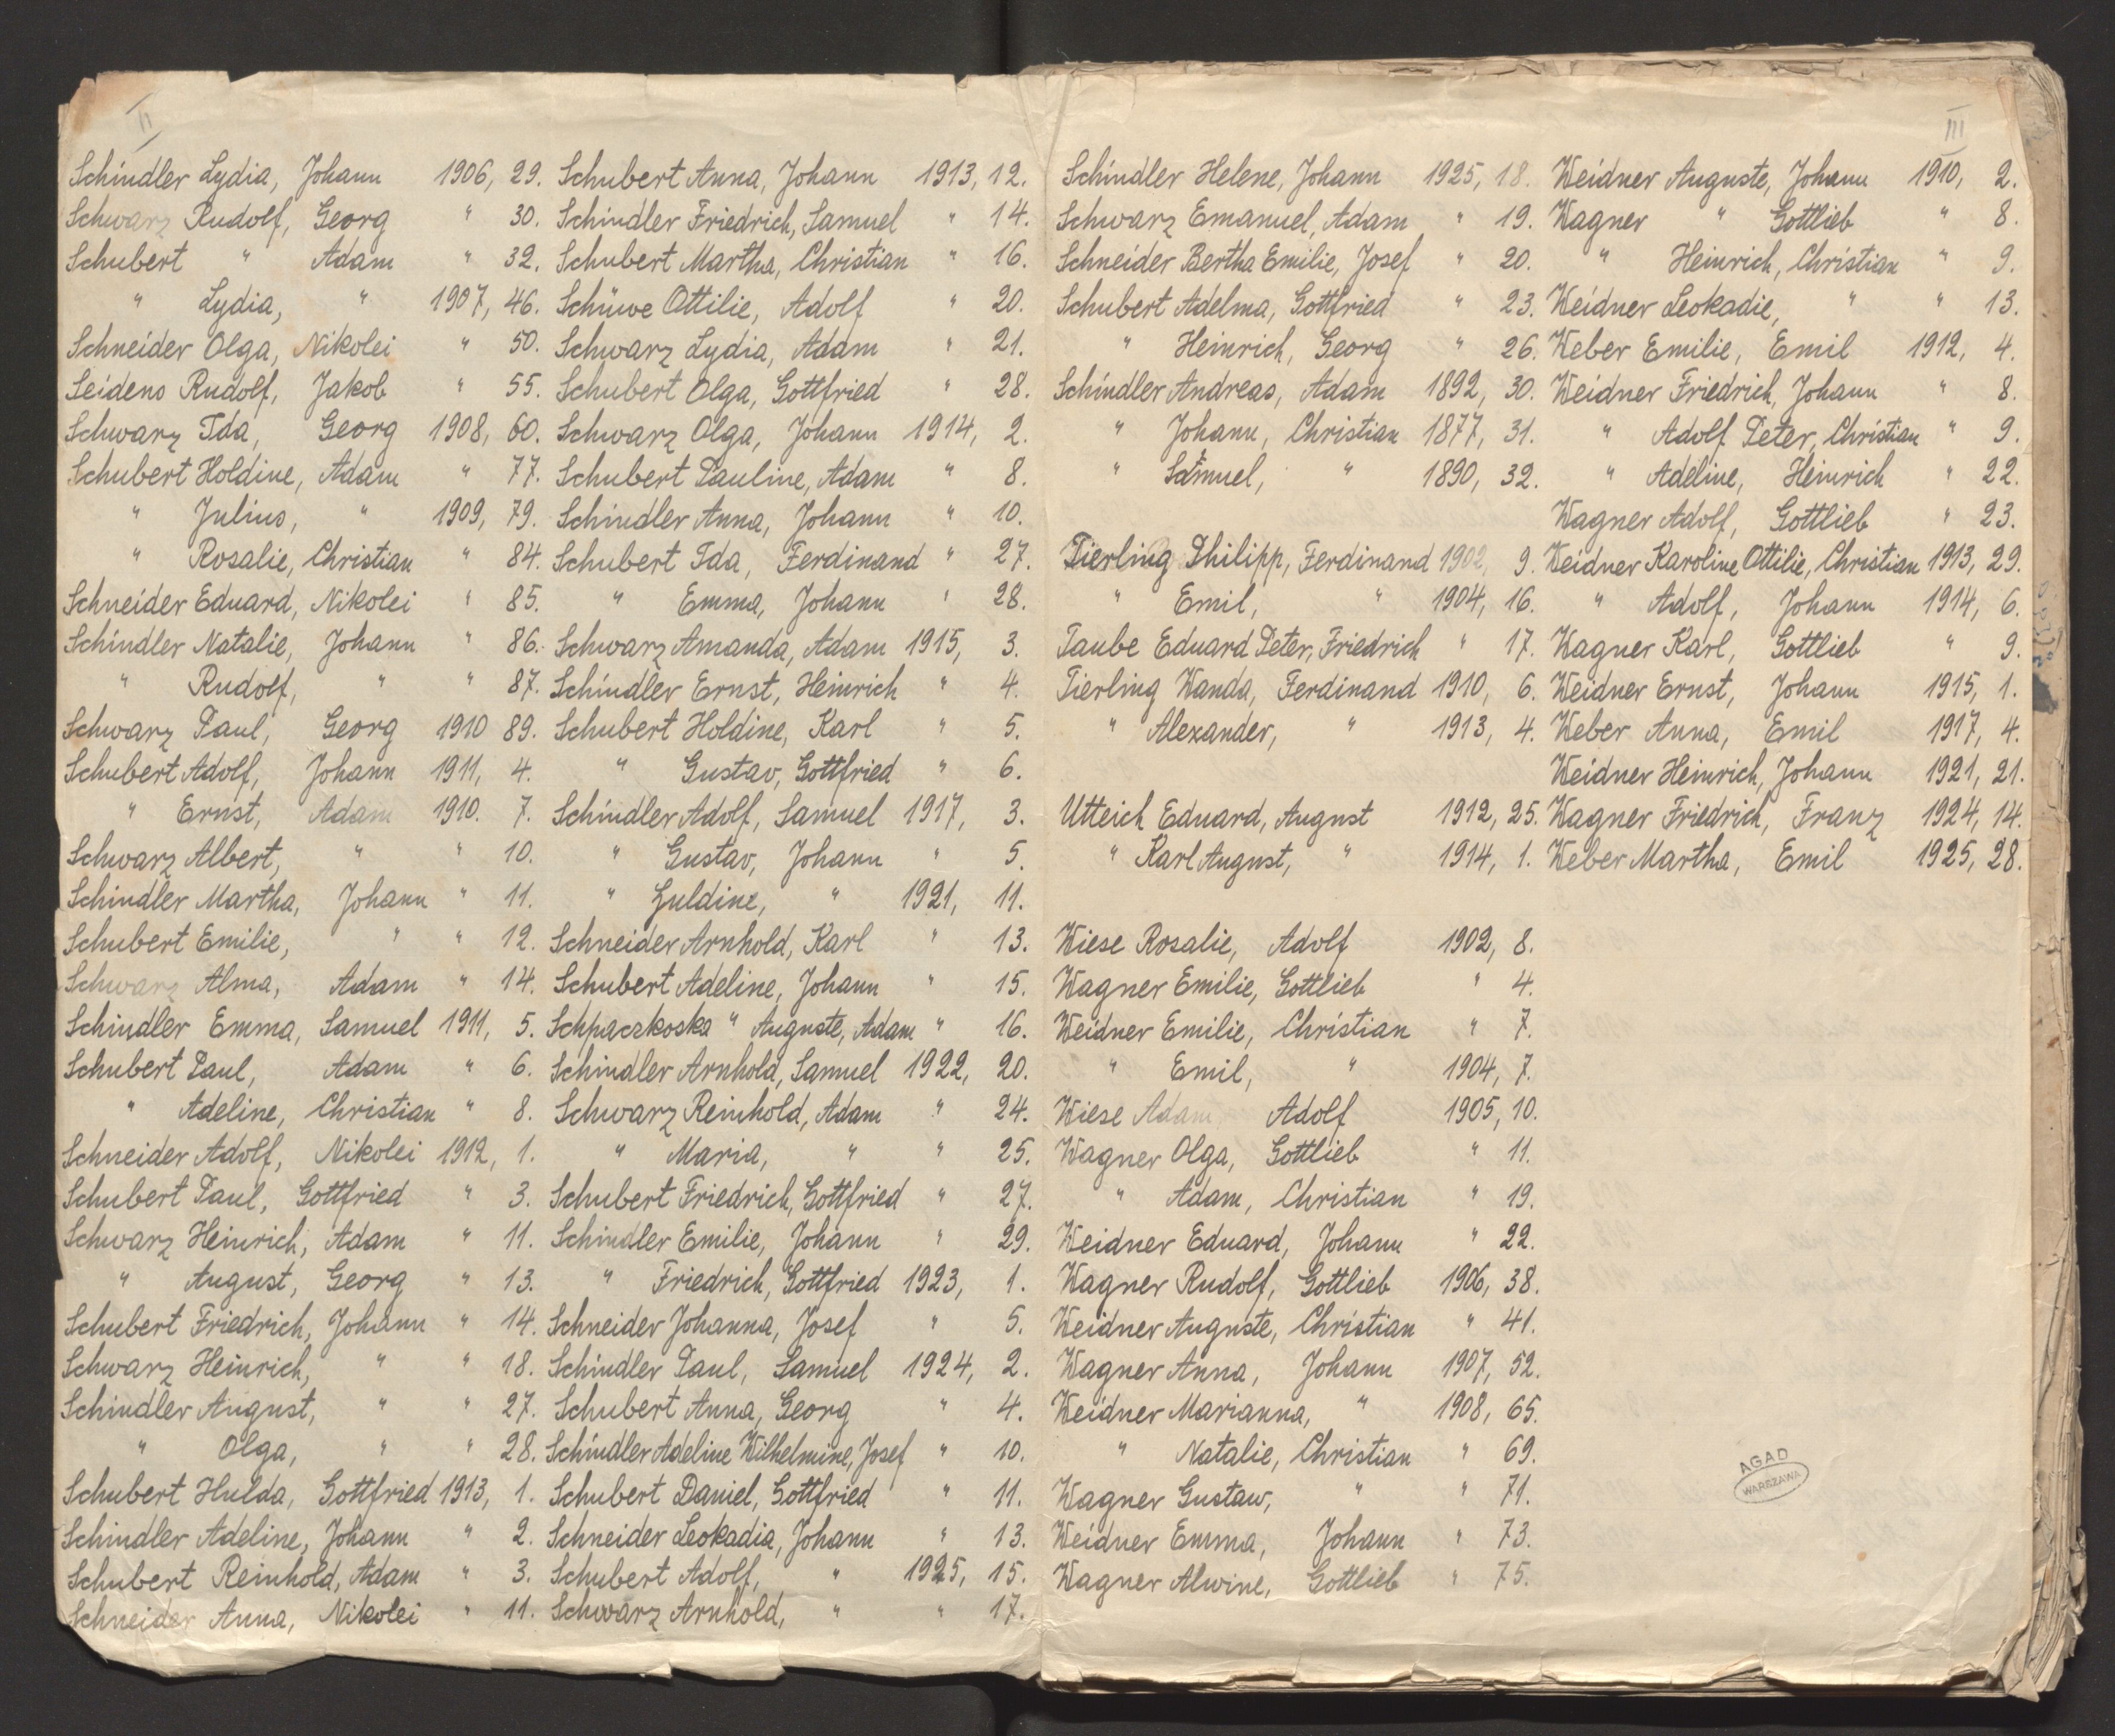 II
Schindler Lydia, Johann 1906, 29.
Schwarz Rudolf, Georg " 30.
Schubert " Adam " 32.
" Lydia, " 1907, 46.
Schneider Olga, Nikolei " 50.
Seidens Rudolf, Jakob " 55.
Schwarz Ida, Georg 1908, 60.
Schubert Holdine, Adam " 77.
" Julius, " 1909, 79.
" Rosalie, Christian " 84.
Schneider Eduard, Nikolei " 85.
Schindler Natalie, Johann " 86.
" Rudolf, " " 87.
Schwarz Paul, Georg 1910 89.
Schubert Adolf, Johann 1911, 4.
" Ernst, Adam 1910. 7.
Schwarz Albert, " " 10.
Schindler Martha, Johann " 11.
Schubert Emilie, " " 12.
Schwarz Alma, Adam " 14.
Schindler Emma, Samuel 1911, 5.
Schubert Paul, Adam " 6.
" Adeline, Christian " 8.
Schneider Adolf, Nikolei 1912, 1.
Schubert Paul, Gottfried " 3.
Schwarz Heinrich, Adam " 11.
" August, Georg " 13.
Schubert Friedrich, Johann " 14.
Schwarz Heinrich, " " 18.
Schindler August, " " 27.
" Olga, " " 28.
Schubert Hulda, Gottfried 1913, 1.
Schindler Adeline, Johann " 2.
Schubert Reinhold, Adam " 3.
Schneider Anna, Nikolei " 11.
Schubert Anna, Johann 1913, 12.
Schindler Friedrich, Samuel " 14.
Schubert Martha, Christian " 16.
Schüwe Ottilie, Adolf " 20.
Schwarz Lydia, Adam " 21.
Schubert Olga, Gottfried " 28.
Schwarz Olga, Johann 1914, 2.
Schubert Pauline, Adam " 8.
Schindler Anna, Johann " 10.
Schubert Ida, Ferdinand " 27.
" Emma, Johann " 28.
Schwarz Amanda, Adam 1915, 3.
Schindler Ernst, Heinrich " 4.
Schubert Holdine, Karl " 5.
" Gustav, Gottfried " 6.
Schindler Adolf, Samuel 1917, 3.
" Gustav, Johann " 5.
" Guldine, " 1921, 11.
Schneider Arnhold, Karl " 13.
Schubert Adeline, Johann " 15.
Schpaczkoska " Auguste, Adam " 16.
Schindler Arnhold, Samuel 1922, 20.
Schwarz Reinhold, Adam " 24.
" Maria, " " 25.
Schubert Friedrich, Gottfried " 27.
Schindler Emilie, Johann " 29.
" Friedrich, Gottfried 1923, 1.
Schneider Johanna, Josef " 5.
Schindler Paul, Samuel 1924, 2.
Schubert Anna, Georg " 4.
Schindler Adeline Wilhelmine, Josef " 10.
Schubert Daniel, Gottfried " 11.
Schneider Leokadia, Johann " 13.
Schubert Adolf, " 1925, 15.
Schwarz Arnhold, " " 17.
III
Schindler Helene, Johann 1925, 18.
Schwarz Emanuel, Adam " 19.
Schneider Bertha Emilie, Josef " 20.
Schubert Adelma, Gottfried " 23.
" Heinrich, Georg " 26.
Schindler Andreas, Adam 1892, 30.
" Johann, Christian 1877, 31.
" Samuel, " 1890, 32.
Tierling Philipp, Ferdinand 1902, 9.
" Emil, " 1904, 16.
Taube Eduard Peter, Friedrich " 17.
Tierling Wanda, Ferdinand 1910, 6.
" Alexander, " 1913, 4.
Utteich Eduard, August 1912, 25.
" Karl August, " 1914, 1.
Wiese Rosalie, Adolf 1902, 8.
Wagner Emilie, Gottlieb " 4.
Weidner Emilie, Christian " 7.
" Emil, " 1904, 7.
Wiese Adam, Adolf 1905, 10.
Wagner Olga, Gottlieb " 11.
" Adam, Christian " 19.
Weidner Eduard, Johann " 22.
Wagner Rudolf, Gottlieb 1906, 38.
Weidner Auguste, Christian " 41.
Wagner Anna, Johann 1907, 52.
Weidner Marianna, " 1908, 65.
" Natalie, Christian " 69.
Wagner Gustaw, " " 71.
Weidner Emma, Johann " 73.
Wagner Alwine, Gottlieb " 75.
Weidner Auguste, Johann 1910, 2.
Wagner " Gottlieb " 8.
" Heinrich, Christian " 9.
Weidner Leokadie, " " 13.
Weber Emilie, Emil 1912, 4.
Weidner Friedrich, Johann " 8.
" Adolf Peter, Christian " 9.
" Adeline, Heinrich " 22.
Wagner Adolf, Gottlieb " 23.
Weidner Karoline Ottilie, Christian 1913, 29.
" Adolf, Johann 1914, 6.
Wagner Karl, Gottlieb " 9.
Weidner Ernst, Johann 1915, 1.
Weber Anna, Emil 1917, 4.
Weidner Heinrich, Johann 1921, 21.
Wagner Friedrich, Franz 1924, 14.
Weber Martha, Emil 1925, 28.
AGAD
WARSZAWA